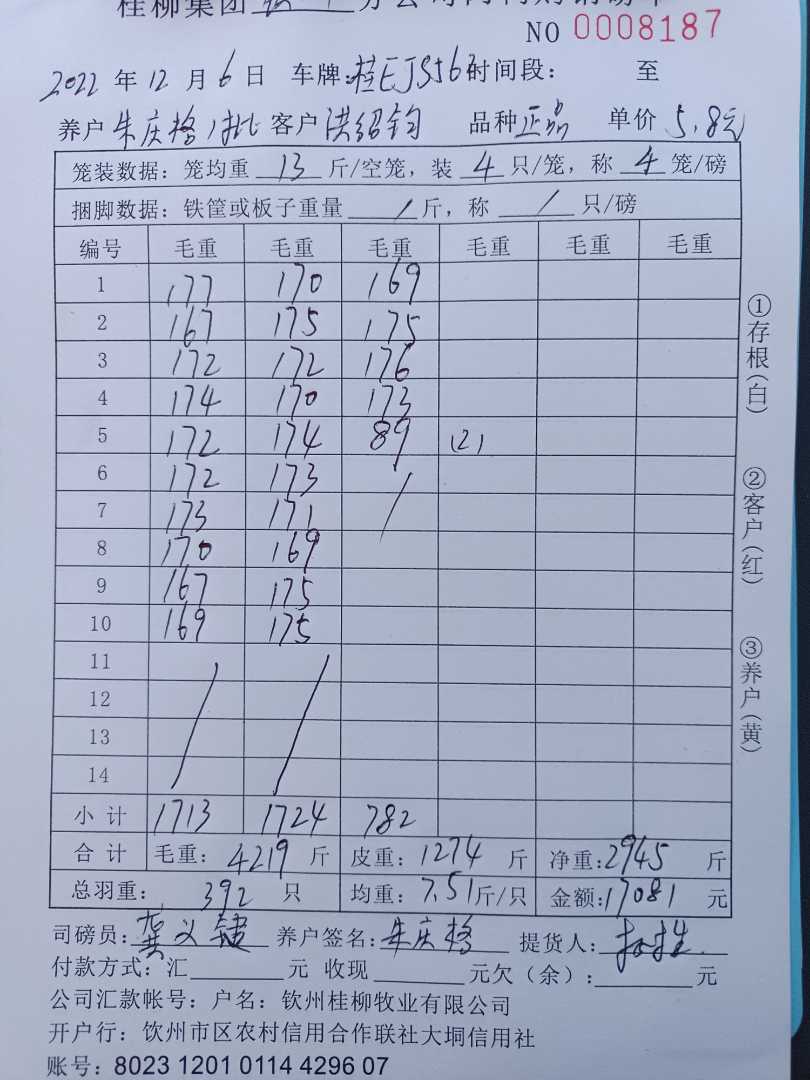 桂柳集团 分公司
NO 0008187
2022 年 12 月 6 日 车牌:桂EJS56 时间段: 至
养户 朱庆格1批 客户 洪绍钧 品种 正品 单价 5.8元
笼装数据: 笼均重 13 斤/空笼, 装 4 只/笼, 称 4 笼/磅
捆脚数据: 铁筐或板子重量 / 斤, 称 / 只/磅
编号 毛重 毛重 毛重 毛重 毛重 毛重
1 177 170 169
2 167 175 175
3 172 172 176
4 174 170 173
5 172 174 89 (2)
6 172 173 /
7 173 171
8 170 169
9 167 175
10 169 175
11
12
13
14
小计 1713 1724 782
合计 毛重: 4219 斤 皮重: 1274 斤 净重: 2945 斤
总羽重: 392 只 均重: 7.51 斤/只 金额: 17081 元
司磅员: 养户签名: 朱庆格 提货人:
付款方式: 汇 元 收现 元欠(余): 元
公司汇款帐号: 户名: 钦州桂柳牧业有限公司
开户行: 钦州市区农村信用合作联社大垌信用社
账号: 8023 1201 0114 4296 07
①存根(白)
②客户(红)
③养户(黄)